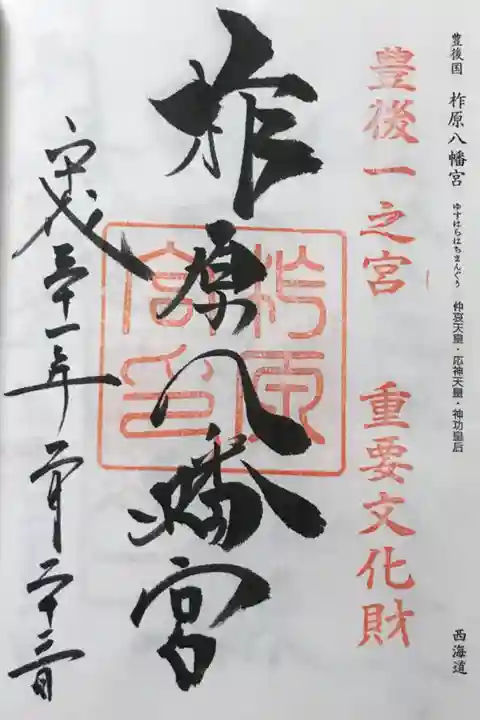 豊後国 柞原八幡宮 ゆすはらはちまんぐう 仲哀天皇・応神天皇・神功皇后 西海道
豊後一之宮 重要文化財
柞原八幡宮
柞原宮印
平成三十一年二月二十三日